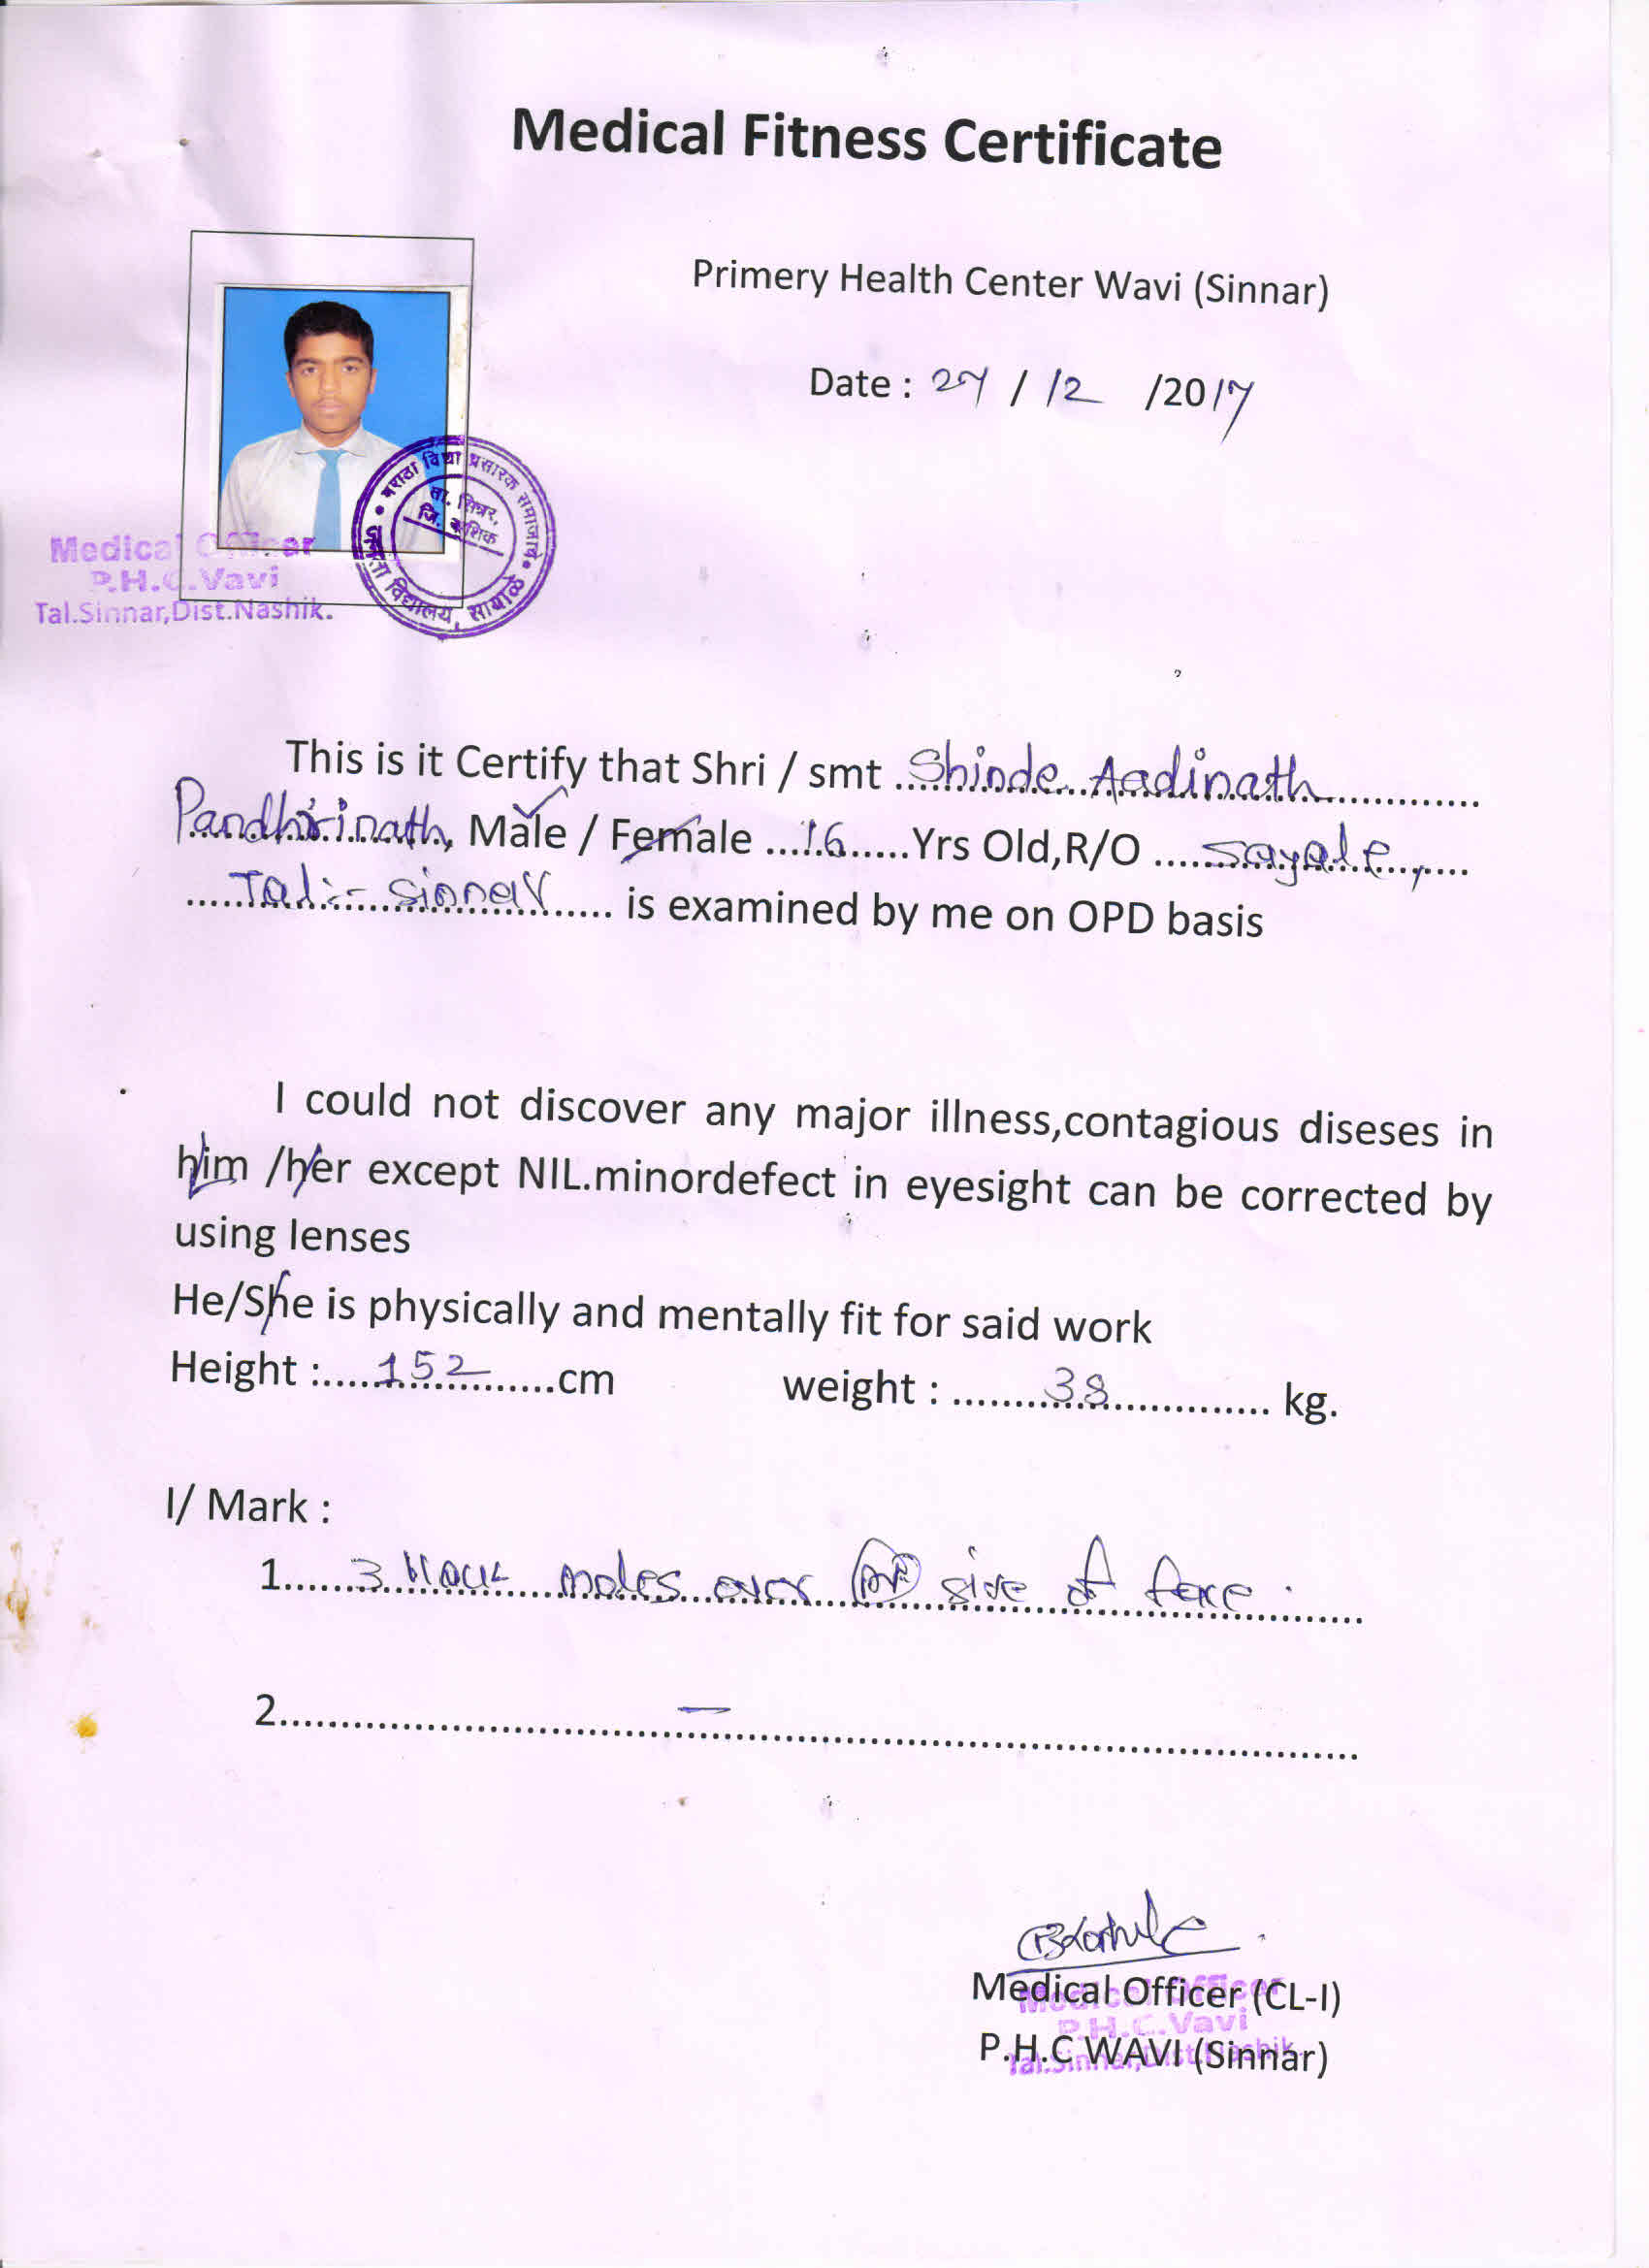 Medical Fitness Certificate
Primery Health Center Wavi (Sinnar)
Date : 27 / 12 /2017
मराठा विद्या प्रसारक समाजाचे
ता. सिन्नर,
जि. नाशिक
जनता विद्यालय, सायाळे
Medical Officer
P.H.C.Vavi
Tal.Sinnar,Dist.Nashik.
This is it Certify that Shri / smt Shinde Aadinath
Pandhrinath, Male / Female ...16......Yrs Old,R/O ....Sayale,
Tal:- Sinnar is examined by me on OPD basis
I could not discover any major illness,contagious diseses in
him /her except NIL.minordefect in eyesight can be corrected by
using lenses
He/She is physically and mentally fit for said work
Height :....152.......cm weight : ........38............. kg.
I/ Mark :
1......3 black moles over side of face .
2........ — ........
Medical Officer (CL-I)
P.H.C WAVI (Sinnar)
Medical Officer
P.H.C.Vavi
Tal.Sinnar,Dist.Nashik.